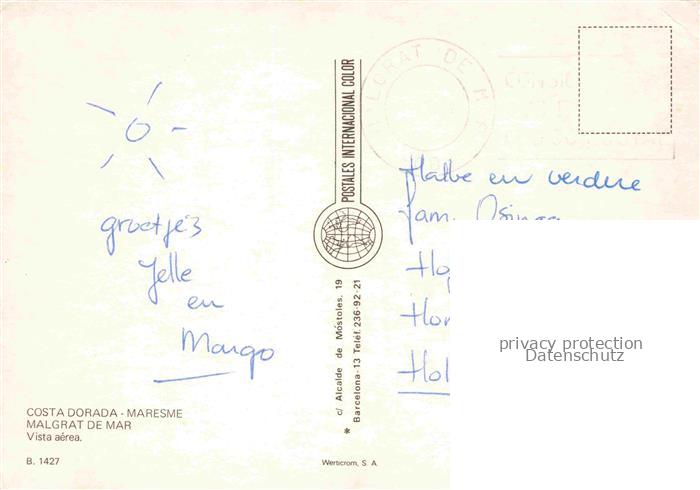 groetje's
Jelle
en
Margo
COSTA DORADA - MARESME
MALGRAT DE MAR
Vista aérea.
B. 1427
POSTALES INTERNACIONAL COLOR
c/ Alcalde de Móstoles, 19
Barcelona-13 Teléf. 236-92-21
*
Werticrom, S. A.
en verdere
fam. Osinga
privacy protection
Datenschutz